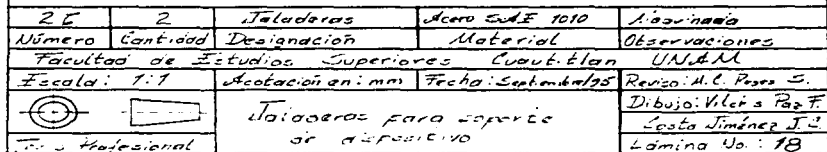 2 2 Taladeras Acero SAE 1010 Maquinado
Número Cantidad Designación Material Observaciones
Facultad de Estudios Superiores Cuautitlan UNAM
Escala: 1:1 Acotación en: mm Fecha: Septiembre/95 Reviso: M.C. Reyes S.
Dibujo: Vilchis Paz F.
para soporte Costa Jiménez J.
de dispositivo
Tesis Profesional Lámina No.: 18